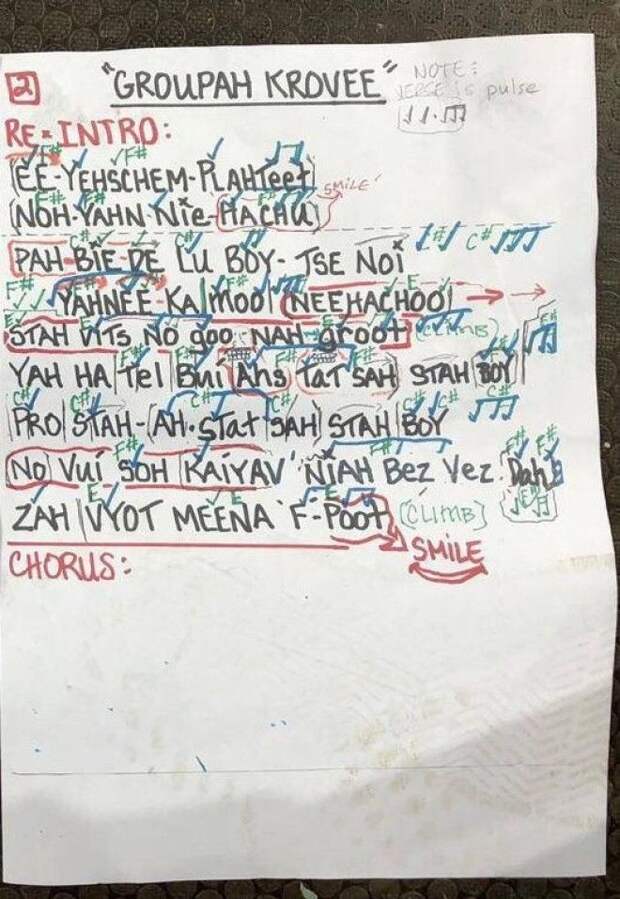 2 "GROUPAH KROVEE"
NOTE:
VERSE is pulse
RE-INTRO:
(EE-YEHSCHEM-PLAHTeet)
(NOH-YAHN-Nie-HACHU) SMILE
PAH-BIE-DE LU BOY-TSE NOI
YAHNEE-KA MOO (NEEHACHOO)
STAH VITS NO goo NAH groot (CLIMB)
YAH HA Tel BUI Ahs TaT SAH) STAH BOY
PRO STAH-(AH-STaT SAH) STAH BOY
NO VUI SOH KAIYAV' NIAH Bez Vez. Dah
ZAH VYOT MEENA 'F-POOT (CLIMB)
SMILE
CHORUS: